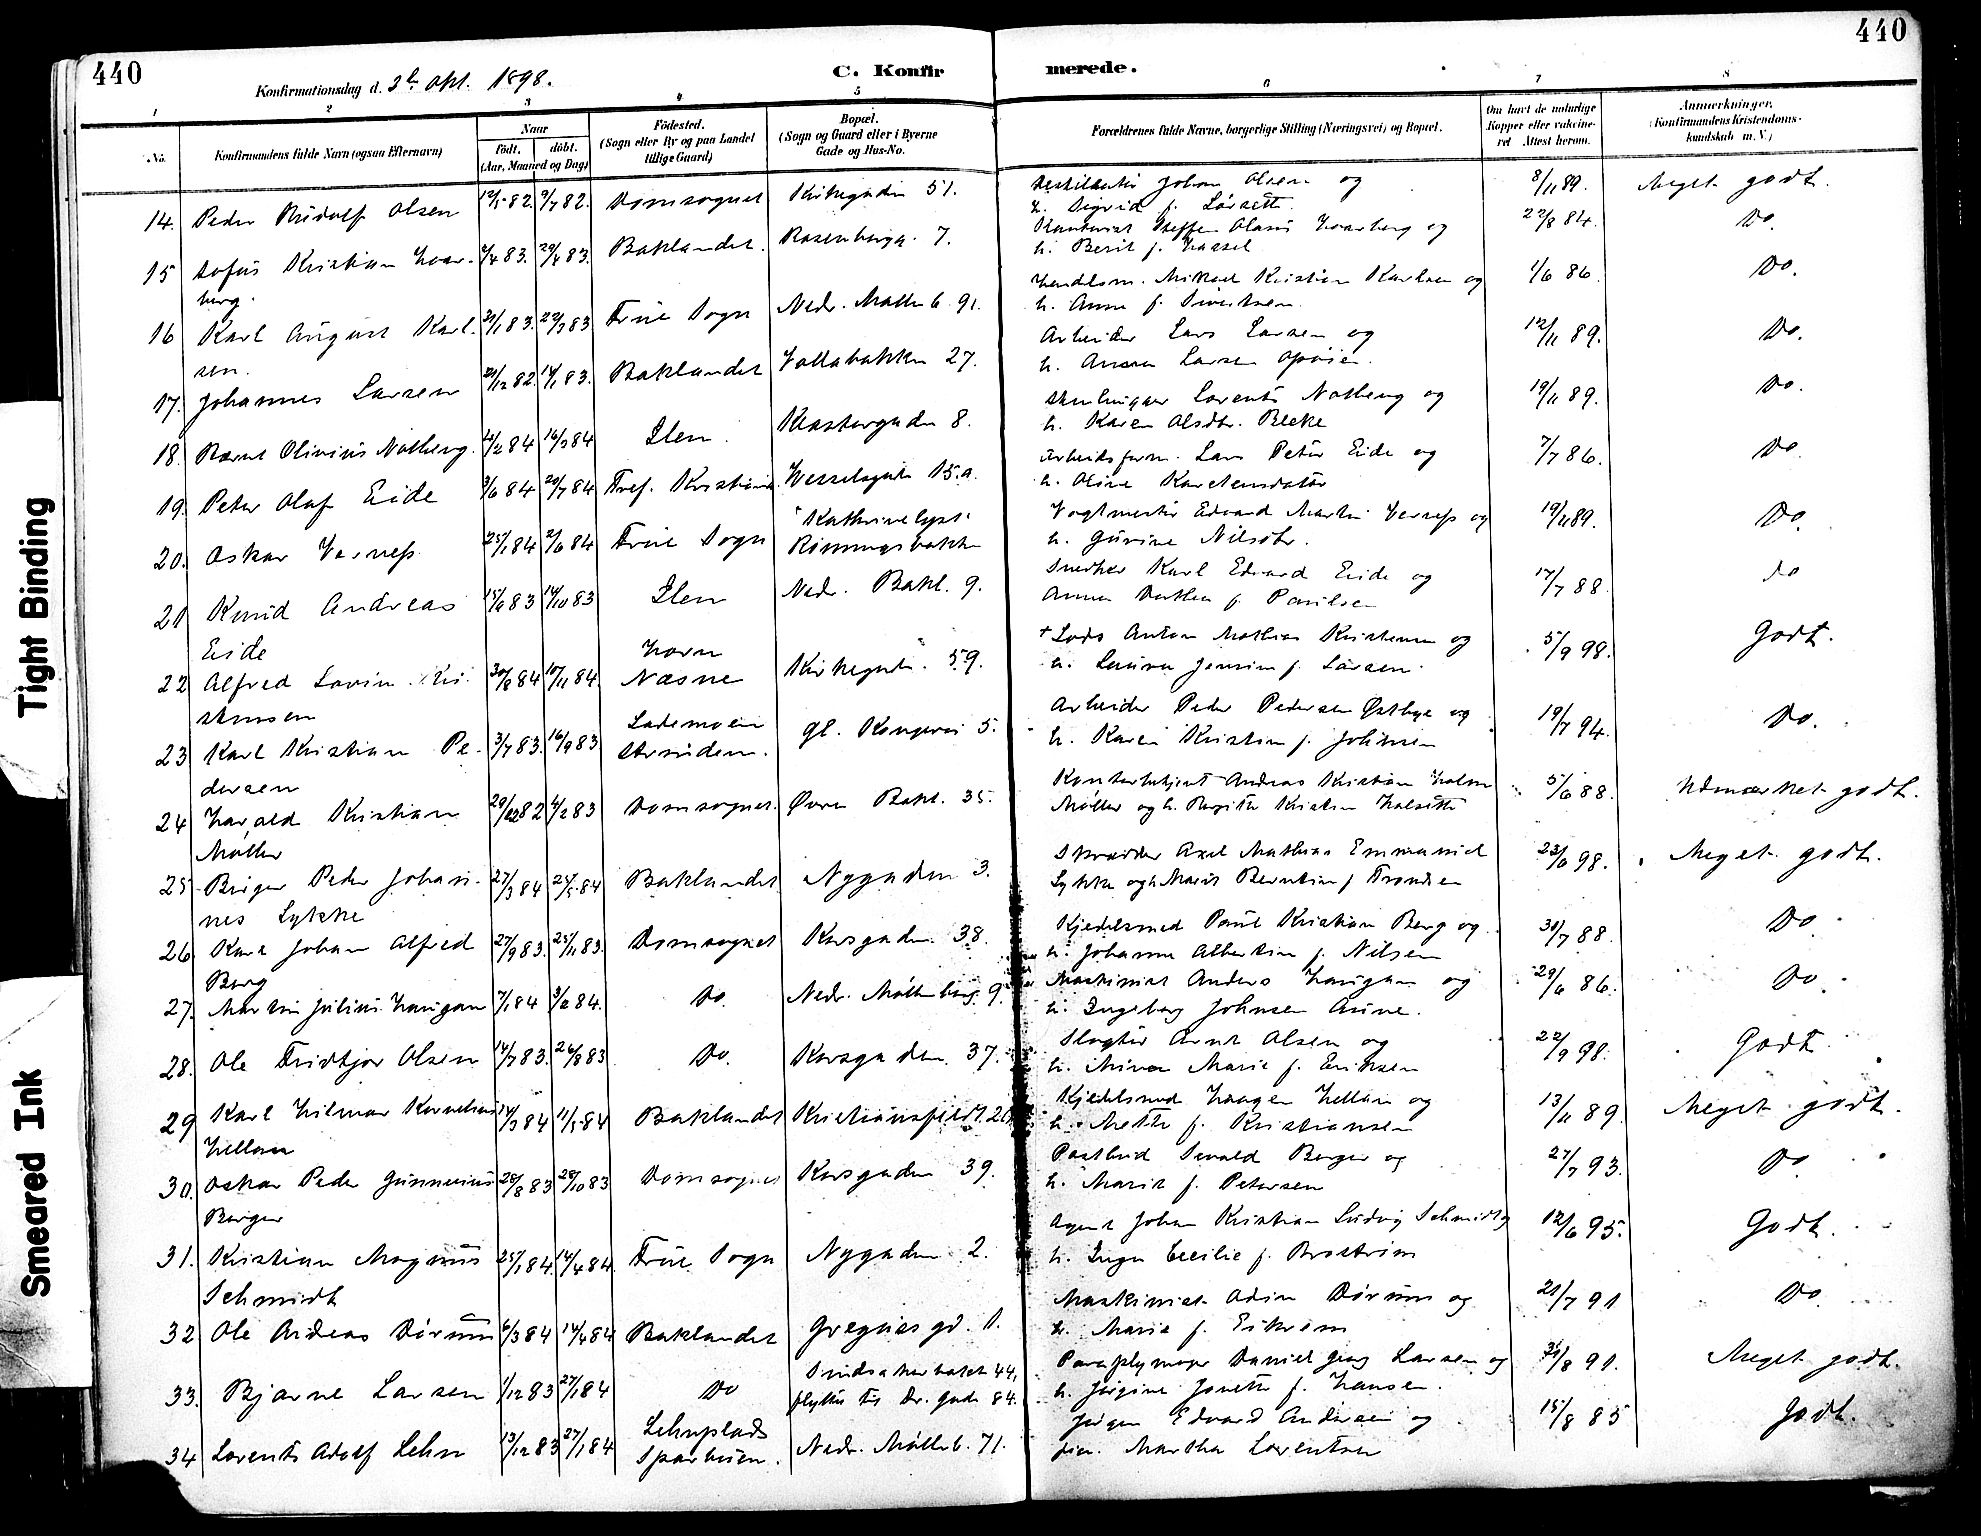 440
440
Konfirmationsdag d. 2de Okt. 1898.
C. Konfir
merede.
1 2 3 4 5 6 7 8
No.
Konfirmandens fulde Navn (ogsaa Efternavn)
Naar
Født. døbt.
(Aar, Maaned og Dag)
Fødested.
(Sogn eller By og paa Landet
tillige Gaard)
Bopæl.
(Sogn og Gaard eller i Byerne
Gade og Hus-No.
Forældrenes fulde Navne, borgerlige Stilling (Næringsvei) og Bopæl.
Om havt de naturlige
Kopper eller vakcine-
ret Attest herom.
Anmerkninger,
(Konfirmandens Kristendoms-
kundskab m. V.)
14. Peder Rudolf Olsen 12/5 82. 9/7 82. Domsognet Kirkegaden 51. Johan Olsen og 8/11 89. Meget godt.
h. Sigrid f. Lörsett.
15 Sofus Kristian Haar- 2/4 83. 29/4 83. Baklandet. Rosenborgg. 7. Steffen Olaus Haarberg og 22/8 84. Do.
berg. h. Berit f. Hassel
16 Karl August Karl- 21/1 83. 22/3 83 Frue Sogn Nedr. Møllenb. 91. Handlsm. Mikael Kristian Karlsen og 1/6 86. Do.
sen. h. Anne f. Sivertsen.
17. Johannes Larsen 21/12 82. 14/1 83. Baklandet Vollabakken 27. Arbeider Lars Larsen og 12/11 89. Do.
h. Anna Larsen
18. Bernt Olivius Notberg. 14/2 84 16/3 84 Ilen. Klostergaden 8. Lorents Notberg og 19/11 89. Do.
h. Karen Olsdtr. Bleke
19. Peter Olaf Eide 3/6 84 20/7 84 Tref. Kristiania Wesselsgate 15.a. Arbeidsform. Lars Peter Eide og 7/7 86. Do
h. Oline Karstensdatter
20. Oskar Verness. 25/1 84 2/6 84 Frue Sogn "Kathrinelyst" Vogtmester Edvard Martin Verness og 19/11 89. Do
Rönningsbakken h. Gurine Nilsdtr.
21 Knud Andreas 15/6 83 14/10 83 Ilen Nedr. Bakl. 9. Snedker Karl Edvard Eide og 17/7 88. do
Eide Anna Dorthea f. Paulsen
22 Alfred Lorin Kri- 30/8 84 10/11 84 Horn Kirkegate. 59. + Lods Anton Mathias Kristensen og 5/9 98. Godt.
stensen Næsne h. Laura Jensine f. Larsen.
23 Karl Kristian Pe- 3/7 83. 16/9 83 Lademoen gl. Kongevei 5. Arbeider Peder Pedersen Østbye og 19/7 94. Do.
dersen Stranden. h. Karen Kristine f. Johnsen
24 Harald Kristian 29/12 82 4/2 83 Domsognet. Øvre Bakl. 35. Kontorbetjent Andreas Kristian Holm 5/6 88. Udmerket godt.
Møller Møller og h. Birgitte Kristin Halsetth
25 Birger Peder Johan- 27/3 84 25/5 84 Baklandet Nygaden 3. Skrædder Axel Mathias Emmanuel 23/6 98. Meget godt.
nes Lykke Lykke og h. Marit Berntine f. Trondsen
26 Karl Johan Alfred 27/9 83. 25/11 83. Domsognet Korsgaden 38. Kjedelsmed Paul Kristian Berg og 30/7 88. Do
Berg h. Johanna Albertine f. Nilsen
27. Martin Julius Haugan 7/1 84 3/2 84. Do. Nedr. Møllenberg. 9. Maskinist Anders Haugan og 29/6 86. Do
h. Ingeborg Johnsen Aune.
28. Ole Fridtjov Olsen 14/7 83. 26/8 83 Do. Korsgaden. 37. Slagter Arnt Olsen og 22/9 98. Godt
h. Mina Marie f. Eriksen
29 Karl Hilmar Kornelius 14/3 84 11/5 84 Baklandet Kristiansfeldt. 26. Kjedelsmed Haagen Hellan og 13/11 89. Meget godt.
Hellan h. Mette f. Kristiansen
30. Oskar Peder Gunnerius 28/8 83 28/10 83 Domsognet Korsgaden 39. Postbud Sivald Berger og 27/7 93. Do
Berger h. Marit f. Petersen
31. Kristian Magnus 25/1 84. 14/4 84 Frue Sogn Nygaden 2. Agent Johan Kristian Ludvig Schmidt og 12/6 95. Godt.
Schmidt h. Inga Cecilie f. Broström
32 Ole Andreas Dørum 6/3 84 14/4 84 Baklandet Gregusgd. 1. Maskinist Odin Dørum og 21/7 91 Do
h. Marie f. Eikrem
33. Bjarne Larsen 1/12 83 27/1 84 Do 44, Paraplymager Daniel Georg Larsen og 31/8 91. Meget godt.
flyttet til Dr. Gade 84. h. Jørgine Jonette f. Hansen.
34 Lorents Adolf Lehn 13/12 83 27/1 84 Lehnplads Nedr. Møllenb. 71. Jørgen Edvard Andersen og 15/8 85 Godt.
Sparbuen. Martha Lorentsen
Tight Binding
Smeared Ink